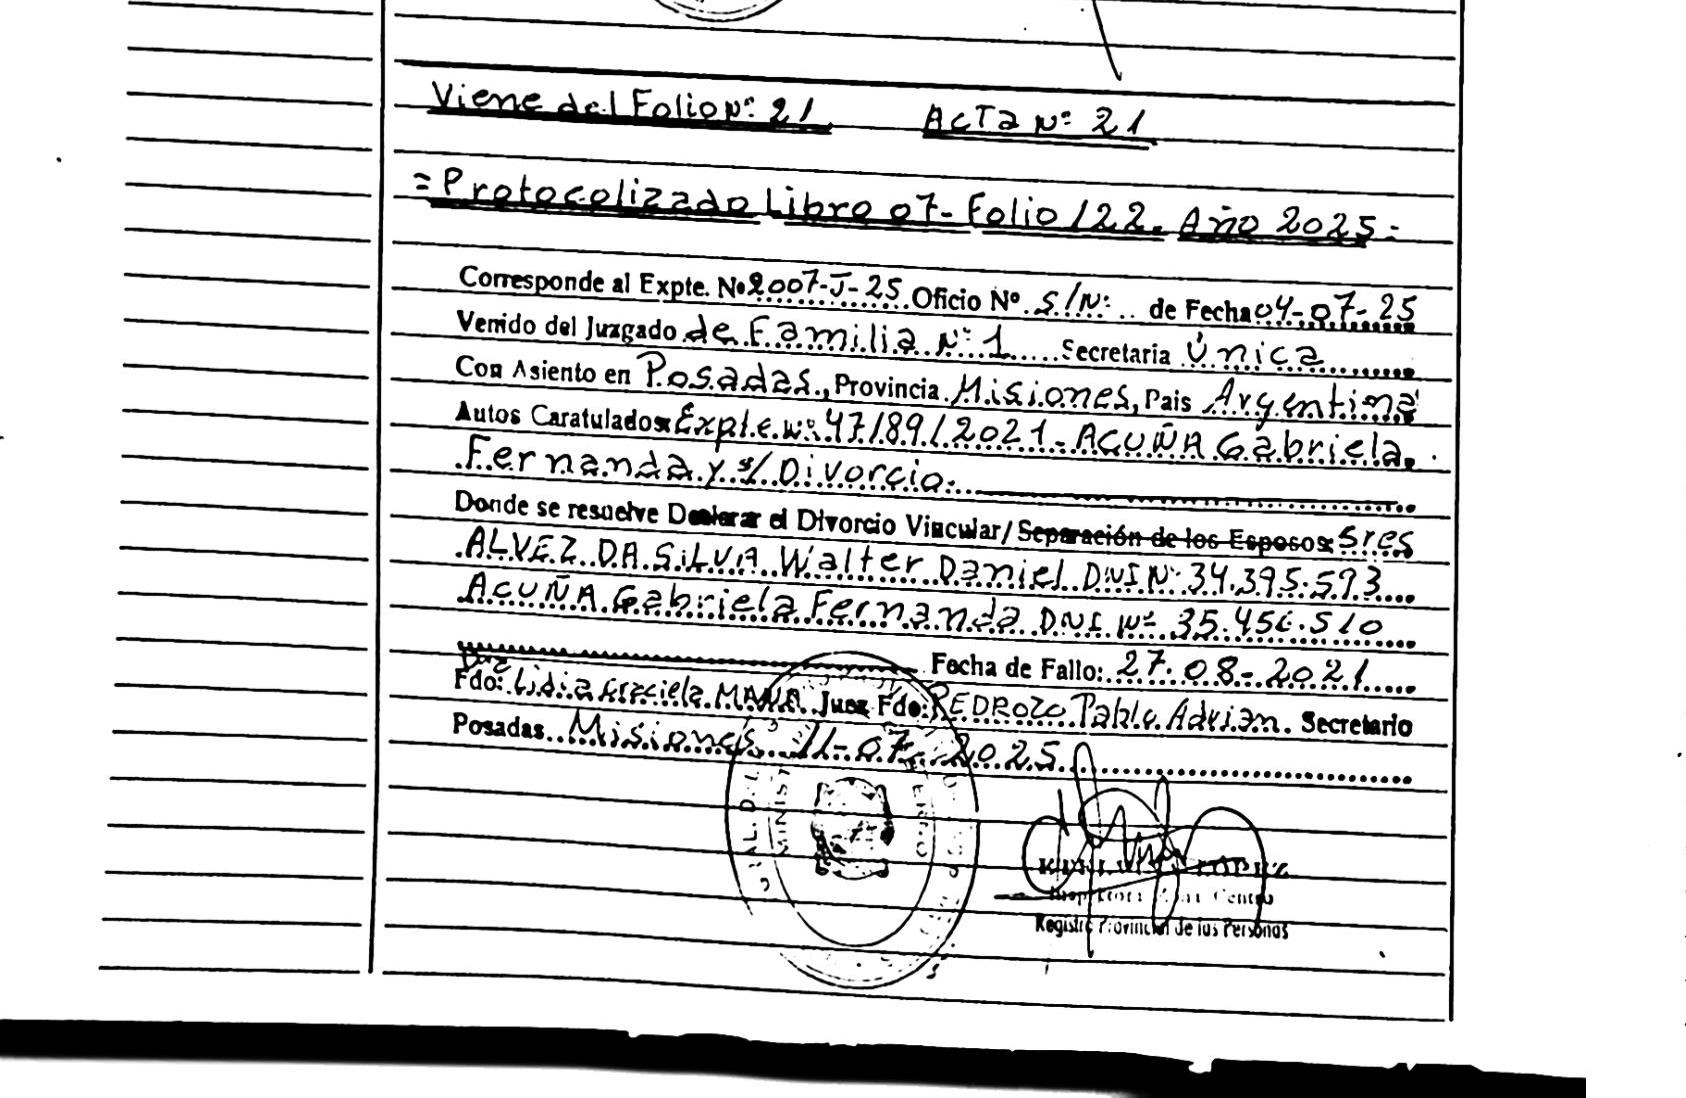 Viene del Folio Nº: 21 Acta Nº 21
= Protocolizado Libro 07- Folio 122. Año 2025 =
Corresponde al Expte. Nº 2007-J-25 Oficio Nº S/Nº de Fecha 04-07-25
Venido del Juzgado de Familia Nº 1 Secretaria Única
Con Asiento en Posadas, Provincia Misiones, Pais Argentina
Autos Caratulados: Expte. Nº 47189/2021- ACUÑA Gabriela
Fernanda y s/ Divorcio.
Donde se resuelve Declarar el Divorcio Vincular/Separación de los Esposos: Sres
ALVEZ DA SILVA Walter Daniel DNI Nº 34.395.593
ACUÑA Gabriela Fernanda DNI Nº 35.456.510
Fecha de Fallo: 27-08-2021
Fdo: Dra Lidia Graciela Juez Fdo: PEDROZO Pablo Adrian. Secretario
Posadas Misiones 11-07-2025
LOPEZ
Centro
Registro Provincial de las Personas